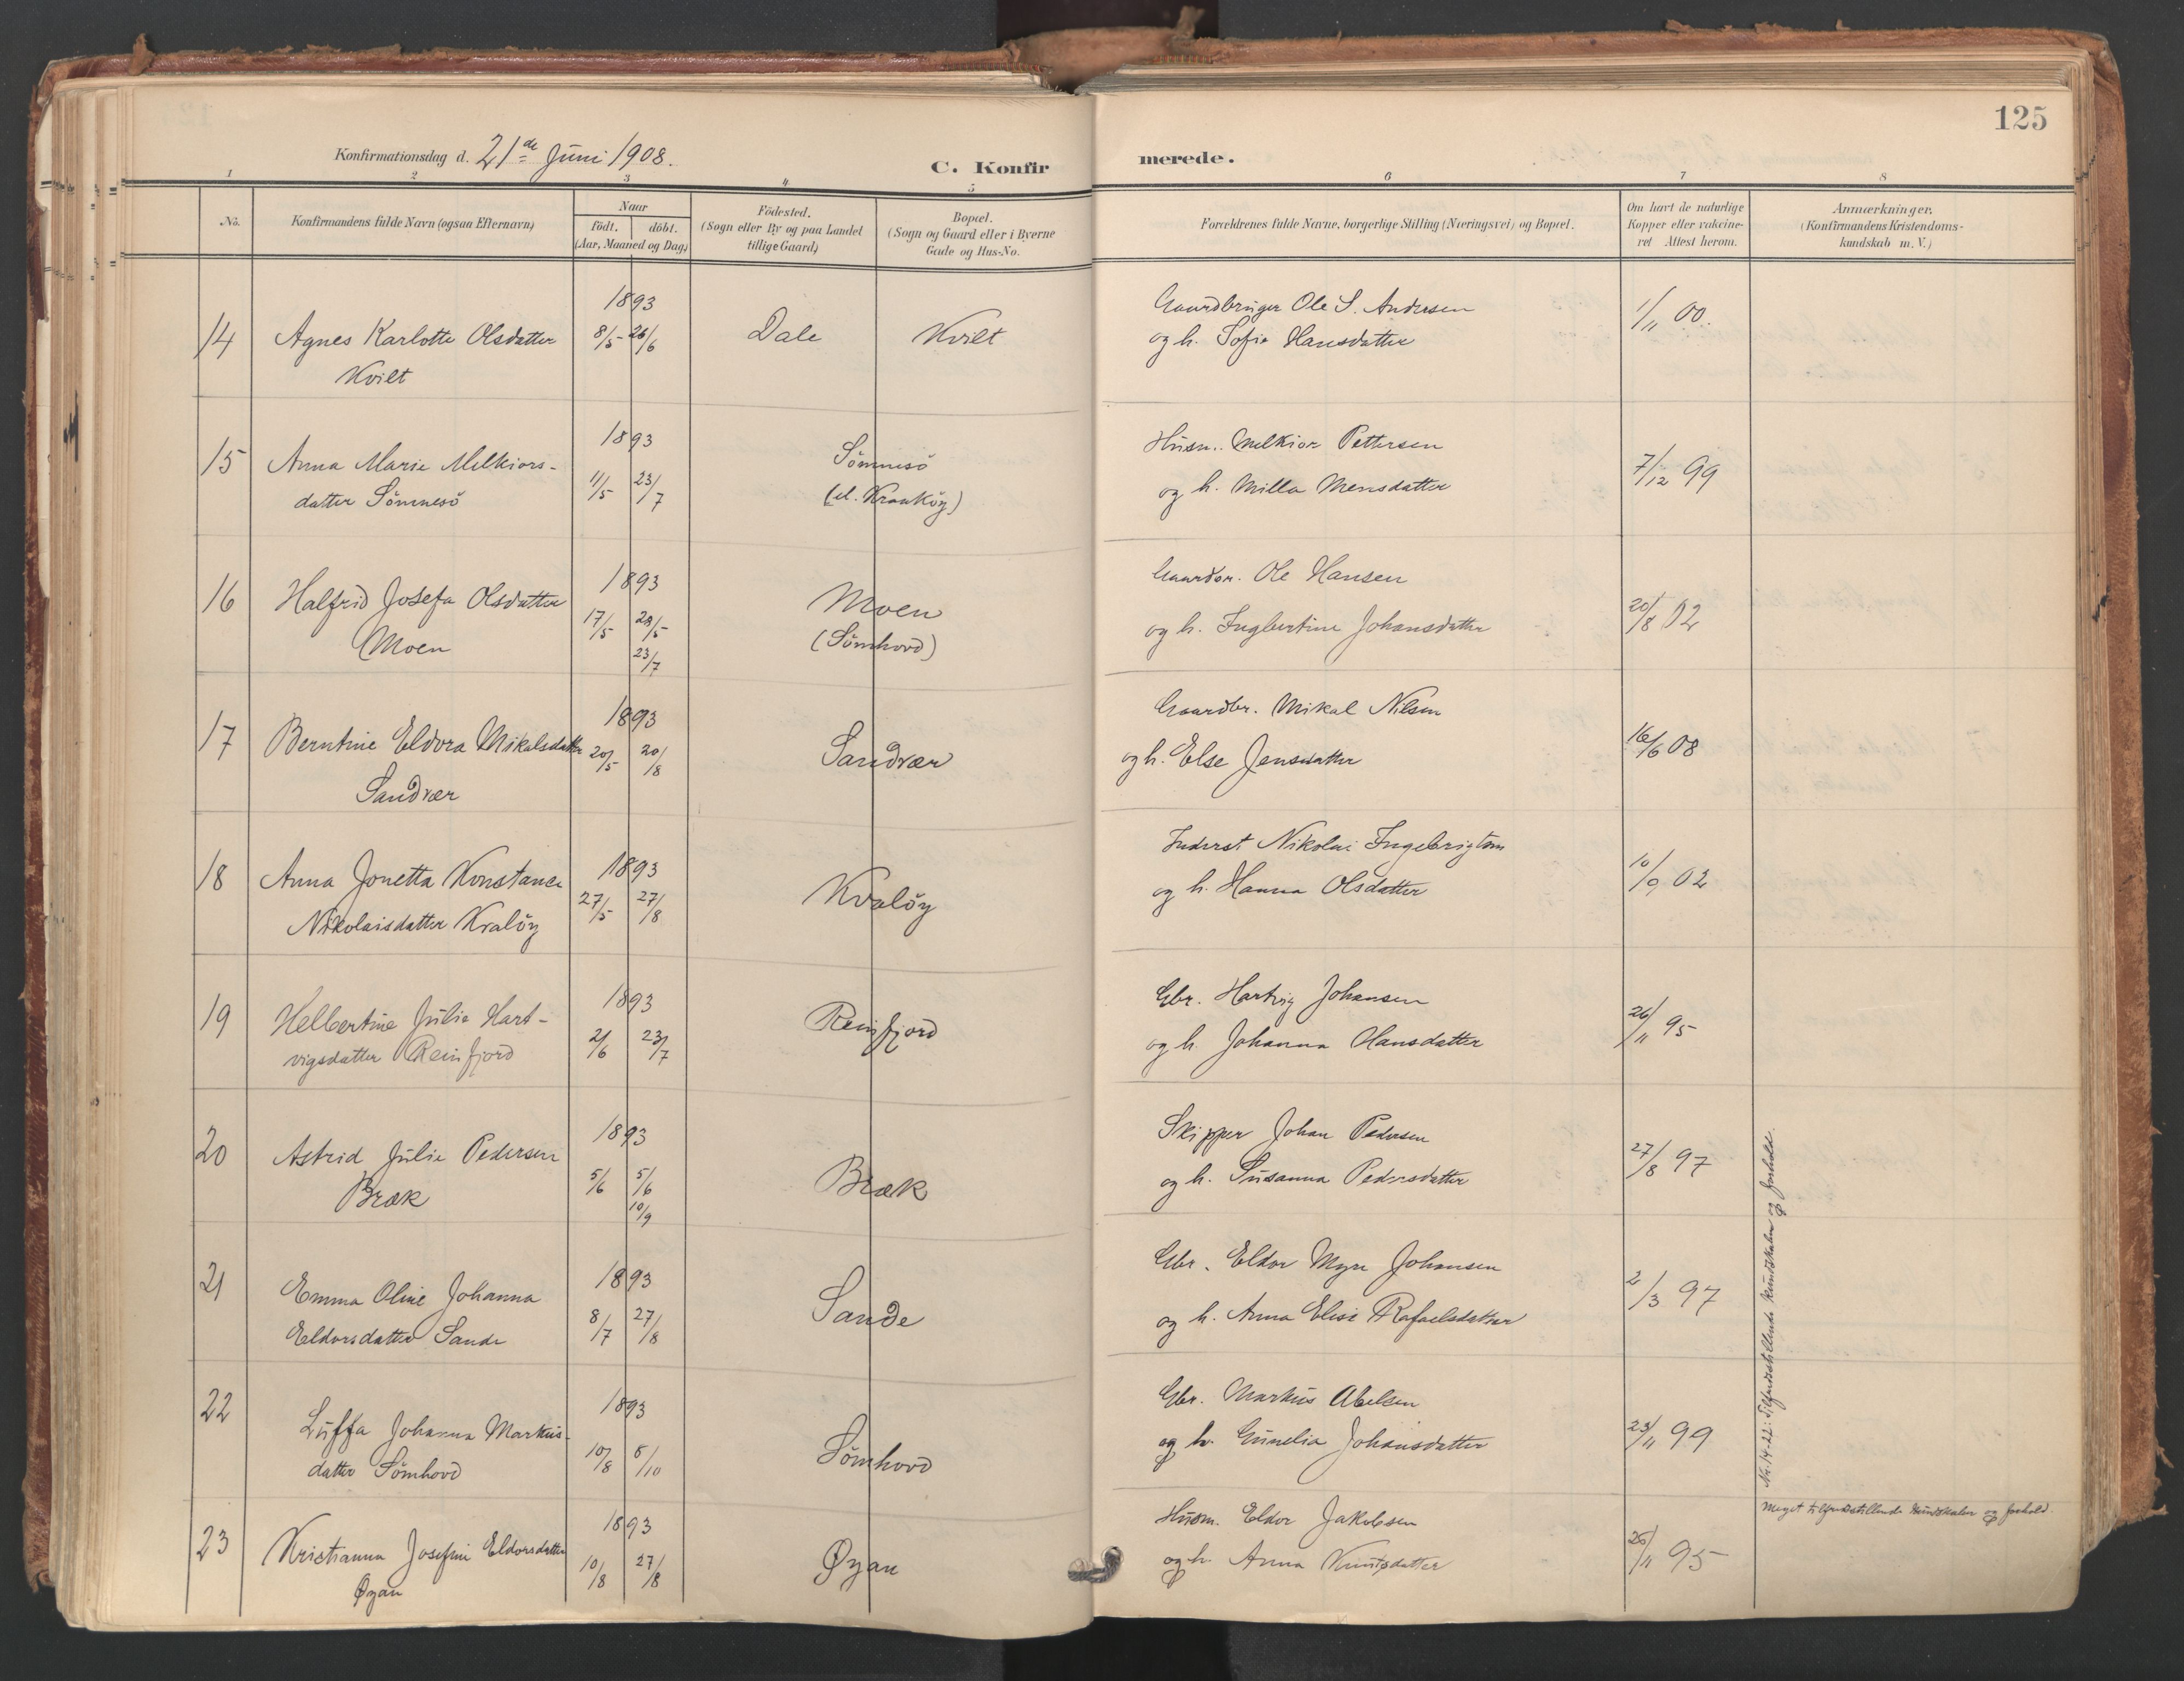 125
Konfirmationsdag d. 21de Juni 1908.
C. Konfir merede.
1 2 3 4 5 6 7 8
No.
Konfirmandens fulde Navn (ogsaa Efternavn)
Naar
födt. döbt.
(Aar, Maaned og Dag)
Födested.
(Sogn eller By og paa Landet
tillige Gaard)
Bopæl.
(Sogn og Gaard eller i Byerne
Gade og Hus-No.
Forældrenes fulde Navne, borgerlige Stilling (Næringsvei) og Bopæl.
Om havt de naturlige
Kopper eller vakcine-
ret Attest herom.
Anmærkninger.
(Konfirmandens Kristendoms-
kundskab m. V.)
1893 Gaardbruger Ole S. Andersen
14 Agnes Karlotte Olsdatter 8/5 26/6 Dale Kvilt og h. Sofie Hansdatter 1/11 00.
Kvilt
1893 Husm. Melkior Pettersen
15 Anna Marie Melkiors- 11/5 23/7 Sömnesö og h. Milla Mensdatter 7/12 99
datter Sömnesö (el. Kranköy)
1893 Gaardbr. Ole Hansen
16 Halfrid Josefa Olsdatter 17/5 28/5 Moen og h. Ingbertine Johansdatter 20/8 02
Moen 23/7 (Sömhovd)
1893 Gaardbr. Mikal Nilsen
17 Berntine Eldora Mikalsdatter 20/5 20/8 Sandvær og h. Else Jensdatter 16/6 08
Sandvær
1893 Inderst Nikolai Ingebrigtsen
18 Anna Jonetta Konstance 27/5 27/8 Kvalöy og h. Hanna Olsdatter 10/9 02
Nikolaisdatter Kvalöy
1893 Gbr. Hartvig Johansen
19 Helbertine Julie Hart- 2/6 23/7 Reinfjord og h. Johanna Hansdatter 26/11 95
vigsdatter Reinfjord
1893 Skipper Johan Pedersen
20 Astrid Julie Pedersen 5/6 5/6 Bræk og h. Susanna Pedersdatter 27/8 97
Bræk 10/9
1893 Gbr. Eldor Myre Johansen
21 Emma Oline Johanna 8/7 27/8 Sande og h. Anna Elise Rafaelsdatter 2/3 97
Eldorsdatter Sande
1893 Gbr. Markus Abelsen
22 Luffa Johanna Markus- 10/8 8/10 Sömhovd og h. Gunelia Johansdatter 23/11 99
datter Sömhovd
Nr. 14-22: Tilfredsstillende kundskaber og forhold.
1893 Husm. Eldor Jakobsen Meget tilfredsstillende kundskaber og forhold.
23 Kristianna Josefine Eldorsdatter 10/8 27/8 Øyan og h. Anna Knutsdatter 26/11 95
Øyan